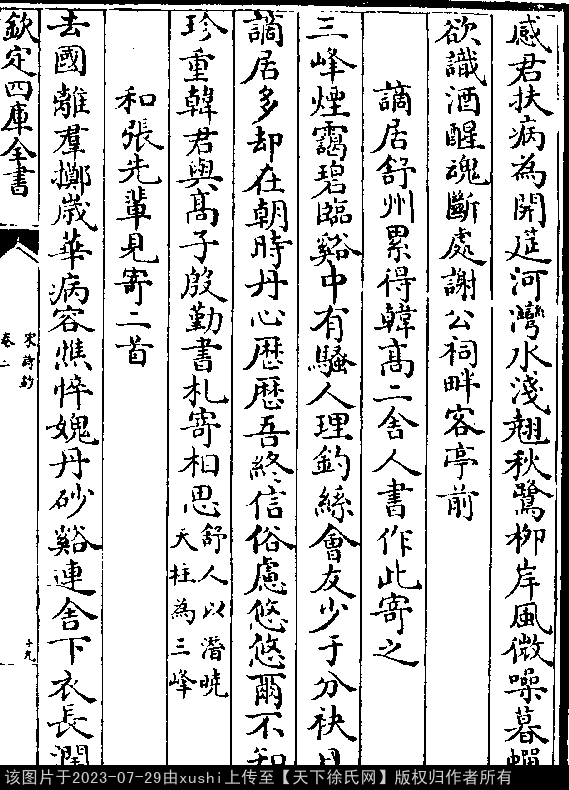 感君扶病為開筵河灣水淺翹秋鷺柳岸風微噪暮蟬
欲識酒醒魂斷處謝公祠畔客亭前
謫居舒州累得韓高二舍人書作此寄之
三峰煙靄碧臨谿中有騷人理釣絲會友少于分袂日
謫居多却在朝時丹心歷歷吾終信俗慮悠悠爾不知
珍重韓君與高子殷勤書札寄相思舒人以潛晥
天柱為三峰
和張先輩見寄二首
去國離羣擲歲華病容憔悴媿丹砂谿連舍下衣長潤
欽定四庫全書
宋詩鈔
卷二
十九
该图片于2023-07-29由xushi上传至【天下徐氏网】版权归作者所有